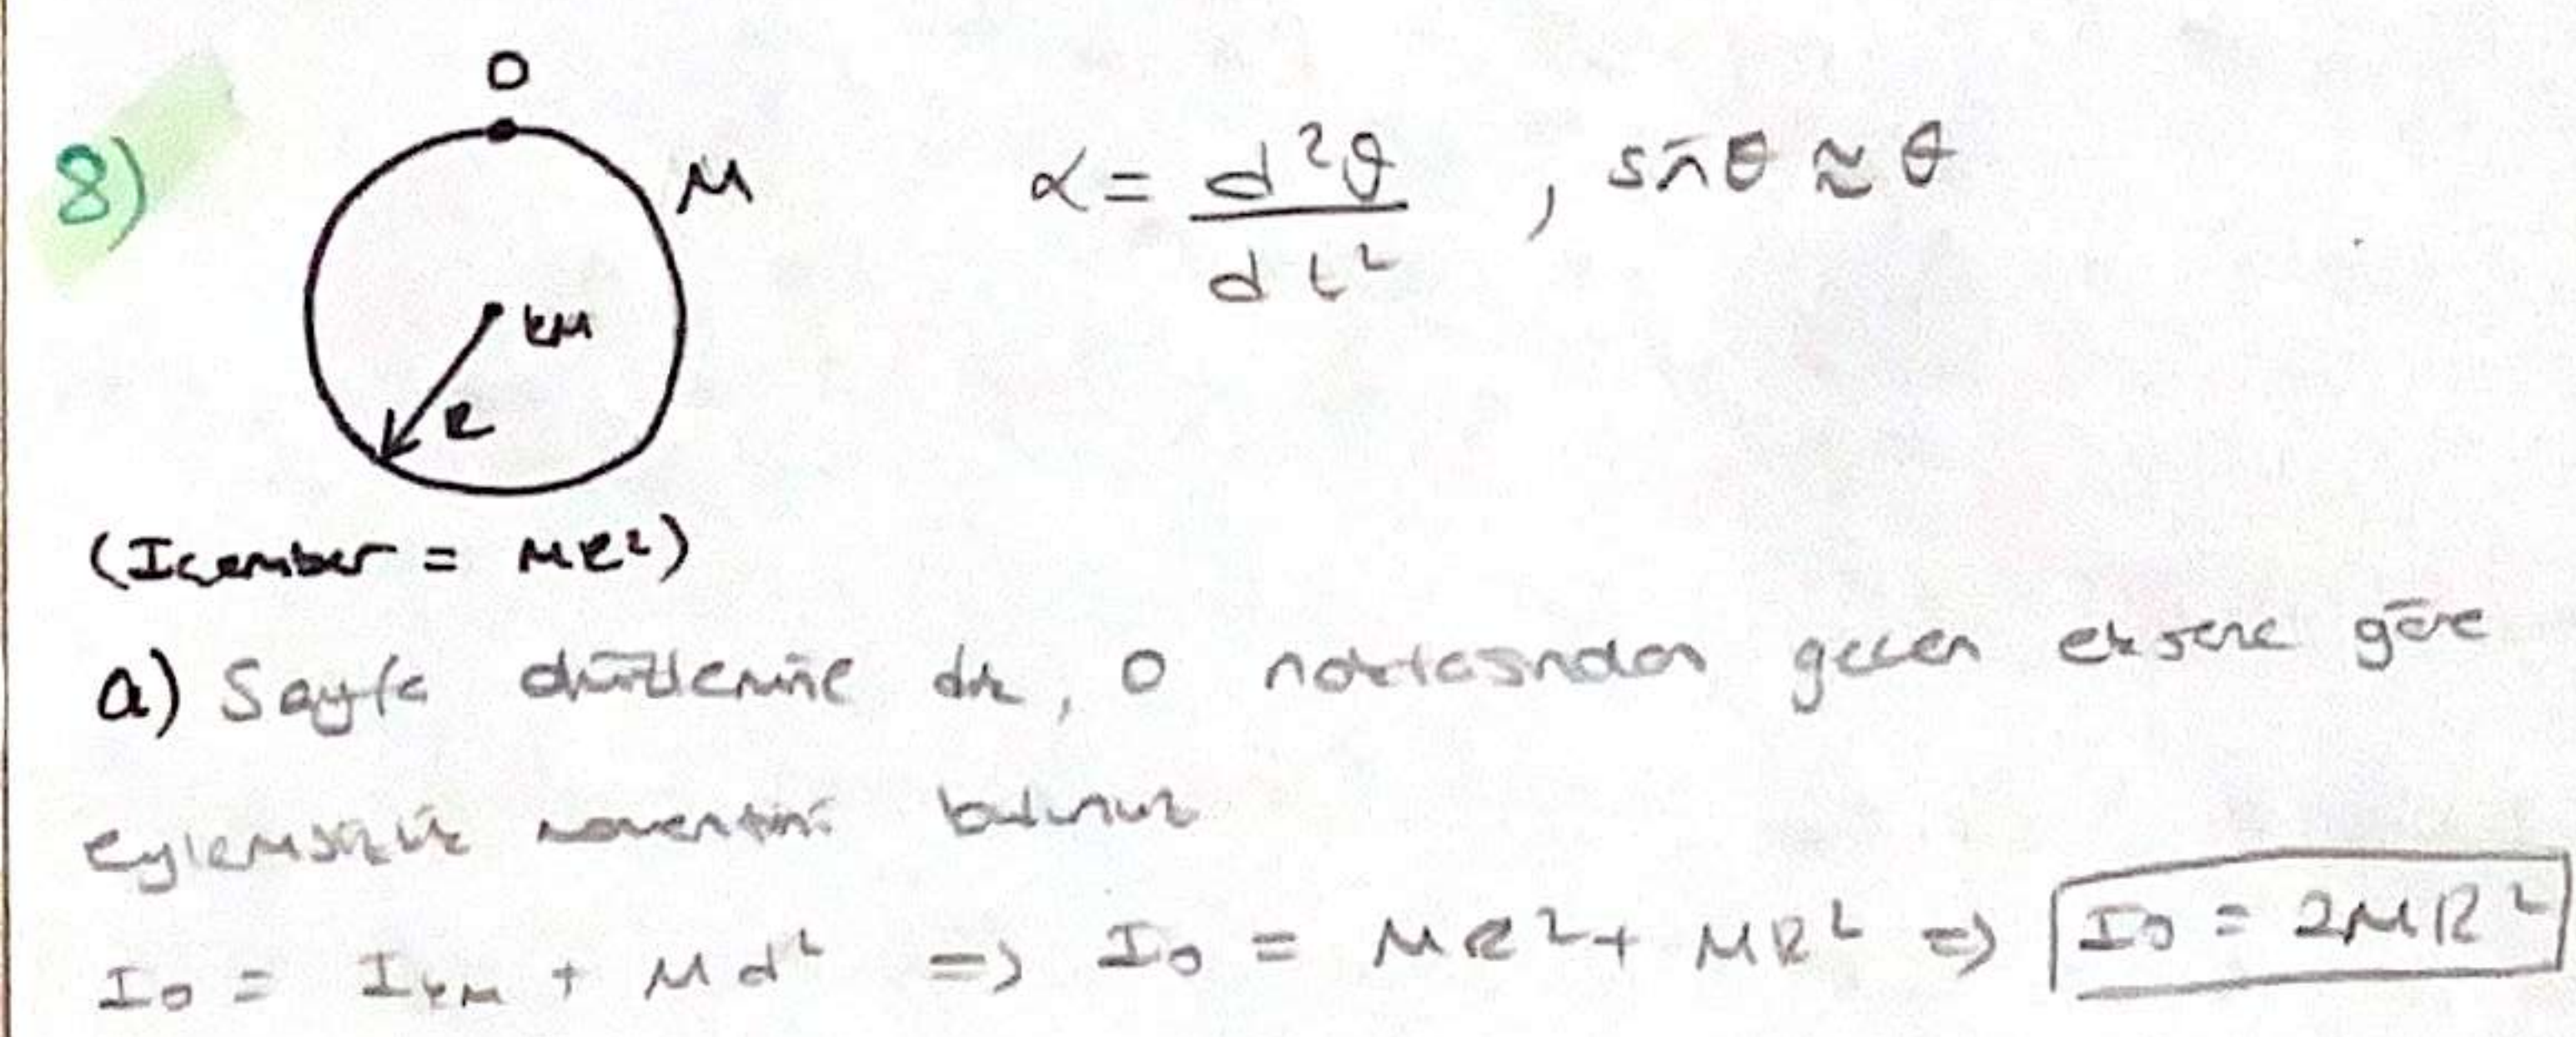 8)
O
M
KM
R
α = d²θ / dt² , sinθ ≈ θ
(Içember = MR²)
a) Sayfa düzlemine dik, O noktasından geçen eksene göre
eylemsizlik momentini bulunuz
I₀ = Iₖₘ + Md² => I₀ = MR² + MR² => I₀ = 2MR²